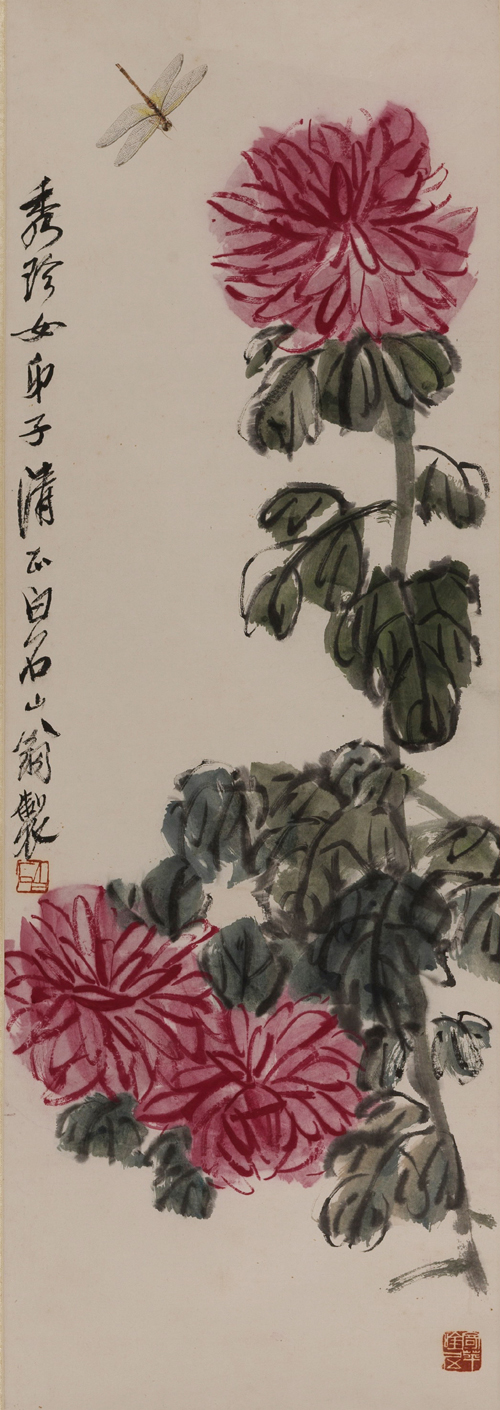 秀珍女弟子清正白石山翁製